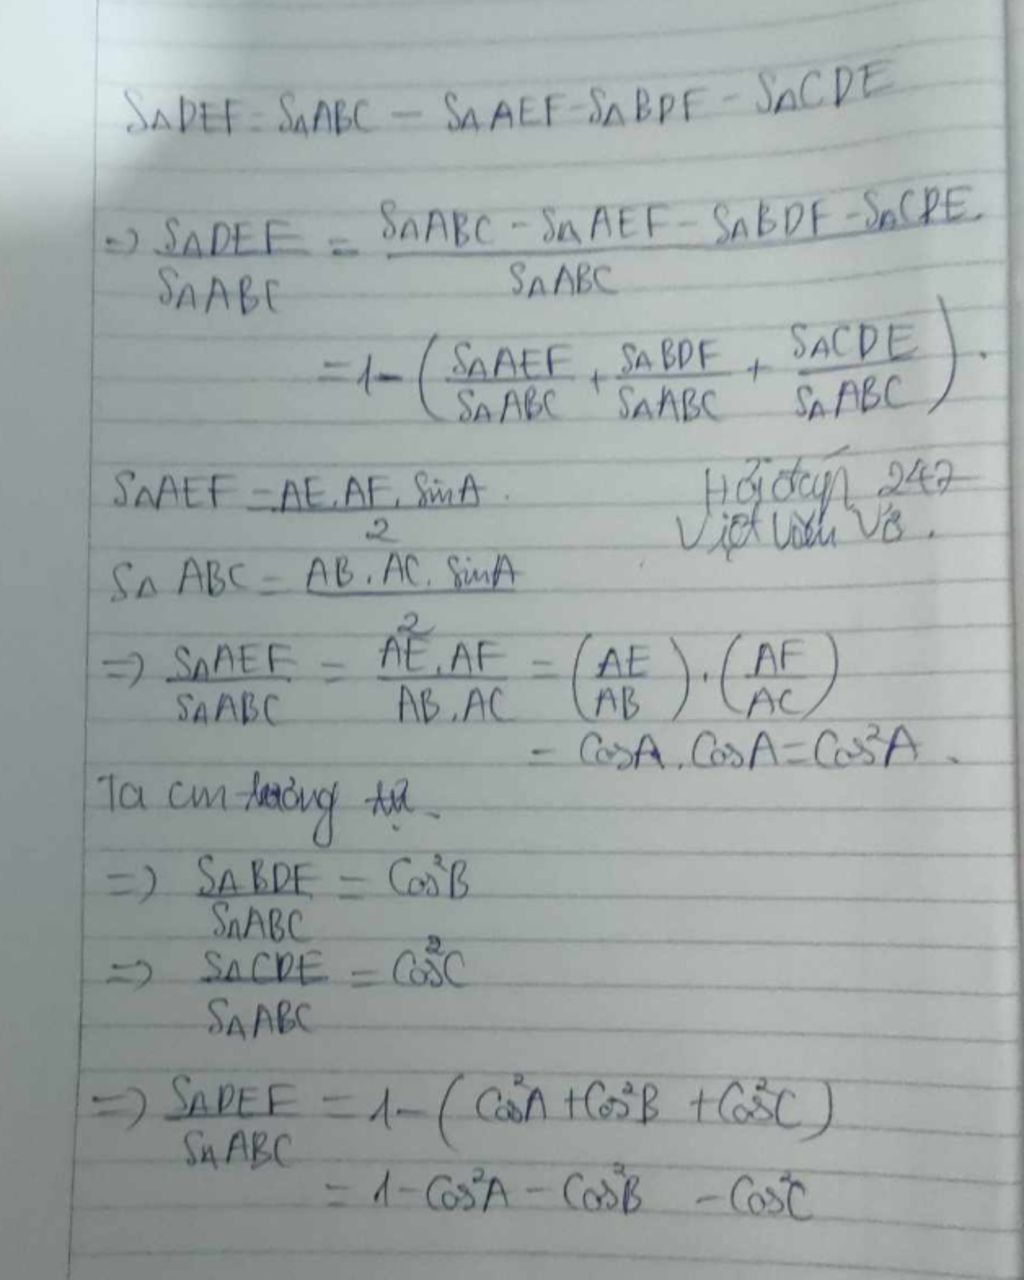 SΔDEF = SΔABC - SΔAEF - SΔBDF - SΔCDE
=> SΔDEF / SΔABC = (SΔABC - SΔAEF - SΔBDF - SΔCDE) / SΔABC
= 1 - (SΔAEF / SΔABC + SΔBDF / SΔABC + SΔCDE / SΔABC).
SΔAEF = AE.AF.SinA / 2
Hỏi đáp 247
SΔABC = AB.AC.SinA / 2
Việt
=> SΔAEF / SΔABC = AE.AF / AB.AC = (AE / AB).(AF / AC)
= CosA.CosA = Cos²A.
Ta cm tương tự.
=> SΔBDF / SΔABC = Cos²B
=> SΔCDE / SΔABC = Cos²C
=> SΔDEF / SΔABC = 1 - (Cos²A + Cos²B + Cos²C)
= 1 - Cos²A - Cos²B - Cos²C